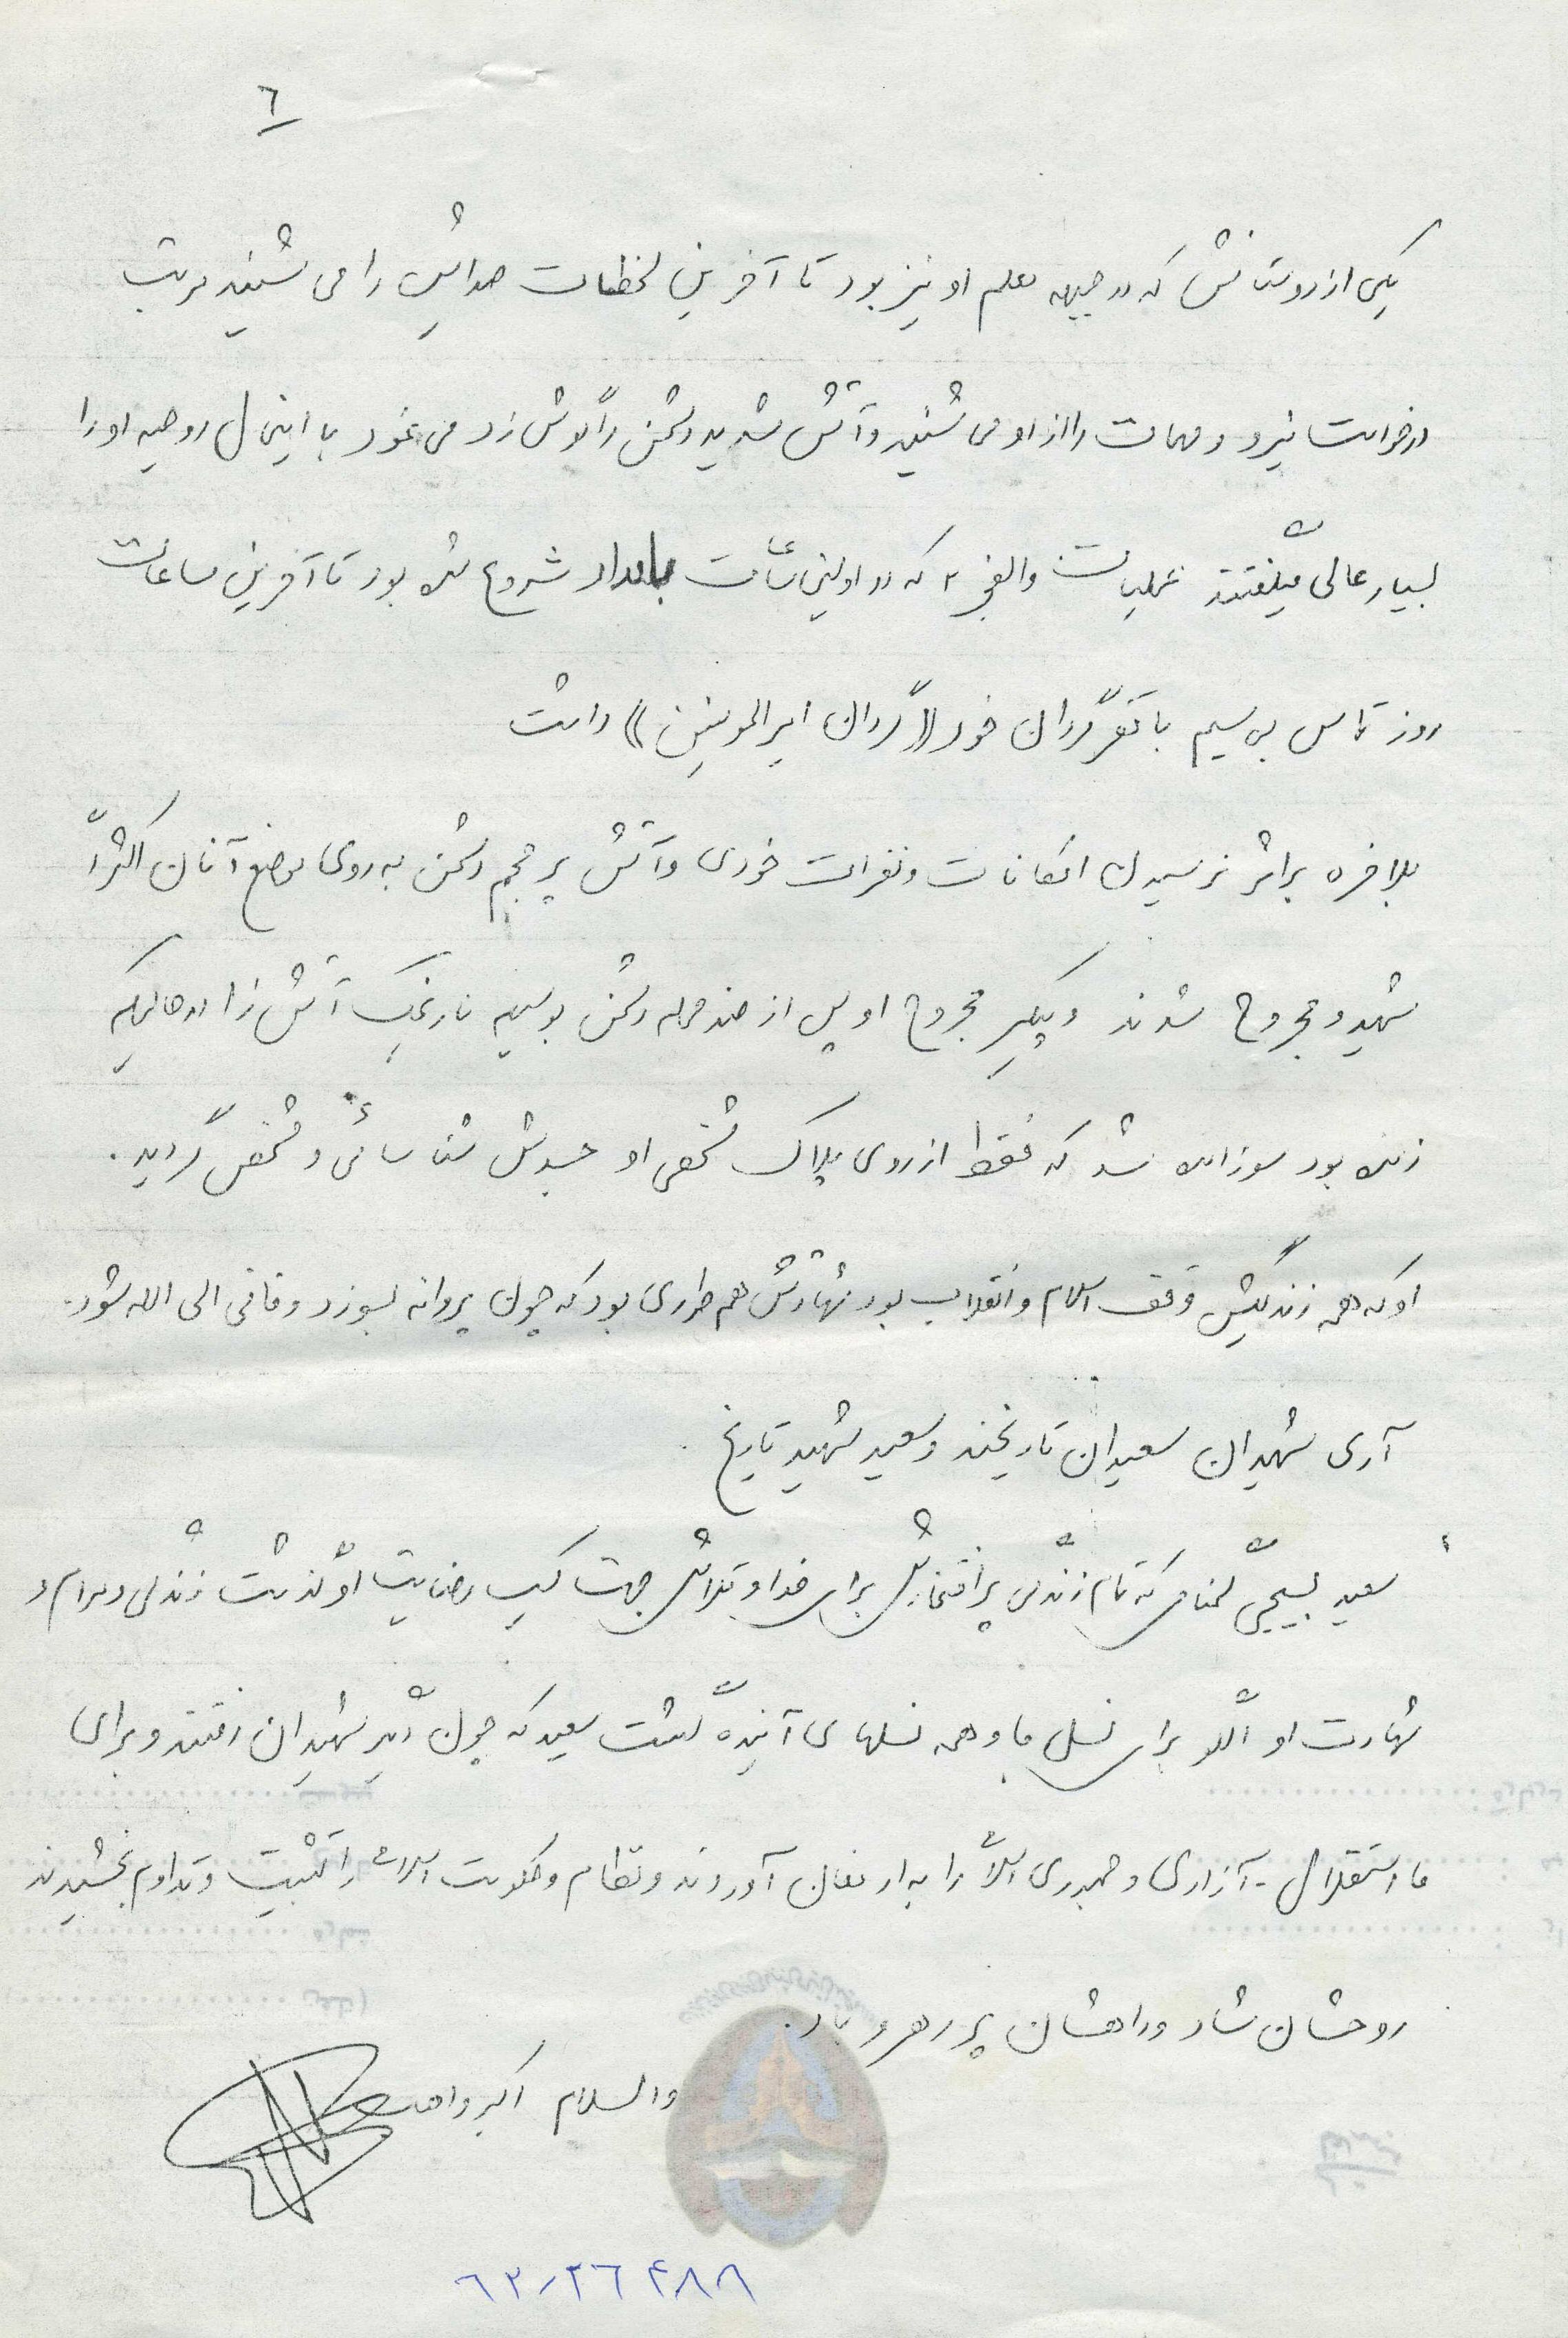 ٦
یکی از دوستانش که در جبهه معلم او نیز بود تا آخرین لحظات صدایش را می شنید مرتب
درخواست نیرو و مهمات را از او می شنید و آتش شدید دشمن را گوش زد می نمود با اینحال روحیه او را
بسیار عالی میگفتند عملیات والفجر ۲ که در اولین ساعت بامداد شروع شده بود تا آخرین ساعات
روز تماس بی سیم با مقر گردان خود ((گردان امیرالمومنین)) داشت
بلاخره براثر نرسیدن امکانات و نفرات خودی و آتش پر حجم دشمن به روی موضع آنان اکثراً
شهید و مجروح شدند و پیکر مجروح او پس از چند مرحله دشمن بوسیله نارنجک آتش زا در حالیکه
زنده بود سوزانده شد که فقط از روی پلاک شخصی او جسدش شناسائی و مشخص گردید.
او که همه زندگیش وقف اسلام و انقلاب بود شهادتش هم طوری بود که چون پروانه بسوزد و فانی الی الله شود.
آری شهیدان سعیدان تاریخند و سعید شهید تاریخ.
سعید بسیجی گمنامی که تمام زندگی پرافتخارش برای خدا و تلاشش جهت کسب رضایت او گذشت زندگی و مرام و
شهادت او الگو برای نسل ما و همه نسلهای آینده گشت سعید که چون دیگر شهیدان رفتند و برای
ما استقلال - آزادی و جمهوری اسلامی را به ارمغان آوردند و نظام و حکومت اسلامی را تثبیت و تداوم بخشیدند
روحشان شاد و راهشان پر رهرو باد.
والسلام اکبر واهب
۶۲/۲۶۴۸۸